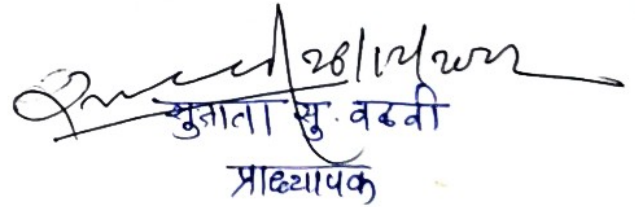 26/12/2022
सुजाता सु. वळवी
प्राध्यापक